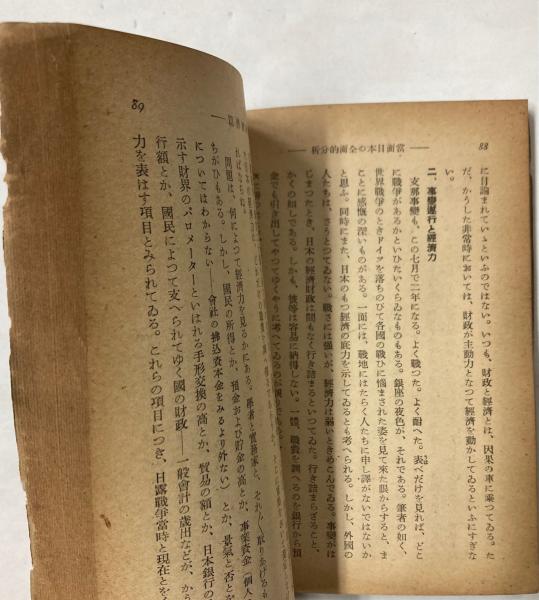 88
― 當面日本の全面的分析 ―
に目論まれていゝといふのではない。いつも、財政と經濟とは、因果の車に乘つてゐる。た
だ、かうした非常時においては、財政が主動力となつて經濟を動かしてゐるといふにすぎな
い。
二、事變遂行と經濟力
支那事變も、この七月で二年になる。よく戰つた。よく耐へた。表べだけを見れば、どこ
に戰爭があるかといひたいくらゐなものもある。銀座の夜色が、それである。筆者の如く、
世界戰爭のときドイツを落ちのびて各國の戰ひに惱まされた姿を見て來た眼からすると、ま
ことに感慨の深いものがある。一面には、戰地にはたらく人たちに申し譯がないではないか
と思ふ。同時にまた、日本のもつ經濟の底力を示してゐるとも考へられる。しかし、外國の
人たちは、さうとつてゐない。戰さには強いが、經濟力は弱いときめこんでゐる。事變がは
じまつたとき、日本の經濟財政は間もなく行き詰まるといつてゐた。行き詰まらざること、
かくの如しである。しかも、彼等は容易に納得しない。一體、戰費を調へるのを銀行から預
金でも引き出してやつてゆくやうに考へてゐるのが
89
問題は、何によつて經濟力を見るかにある。學者と實務家と、それ〲取りあげるも
ちがひもある。しかし、國民の所得とか、預金および貯金の高とか、事業資金（個人
についてはわからない――會社の拂込資本金をみるより外ない）とか、景氣と否とを
示す財界のバロメーターといはれる手形交換の高とか、貿易の額とか、日本銀行の
行額とか、國民によつて支へられてゆく國の財政――一般會計の歳出などが、から
力を表はす項目とみられてゐる。これらの項目につき、日露戰爭當時と現在とを